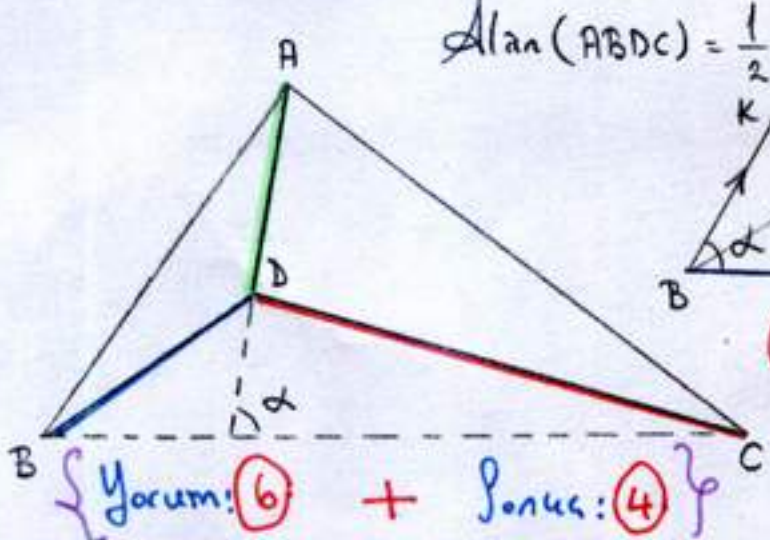 Alan(ABDC) = 1/2
A
K
D
α
B
α
B
C
{ Yorum: 6 + Sonuç: 4 }